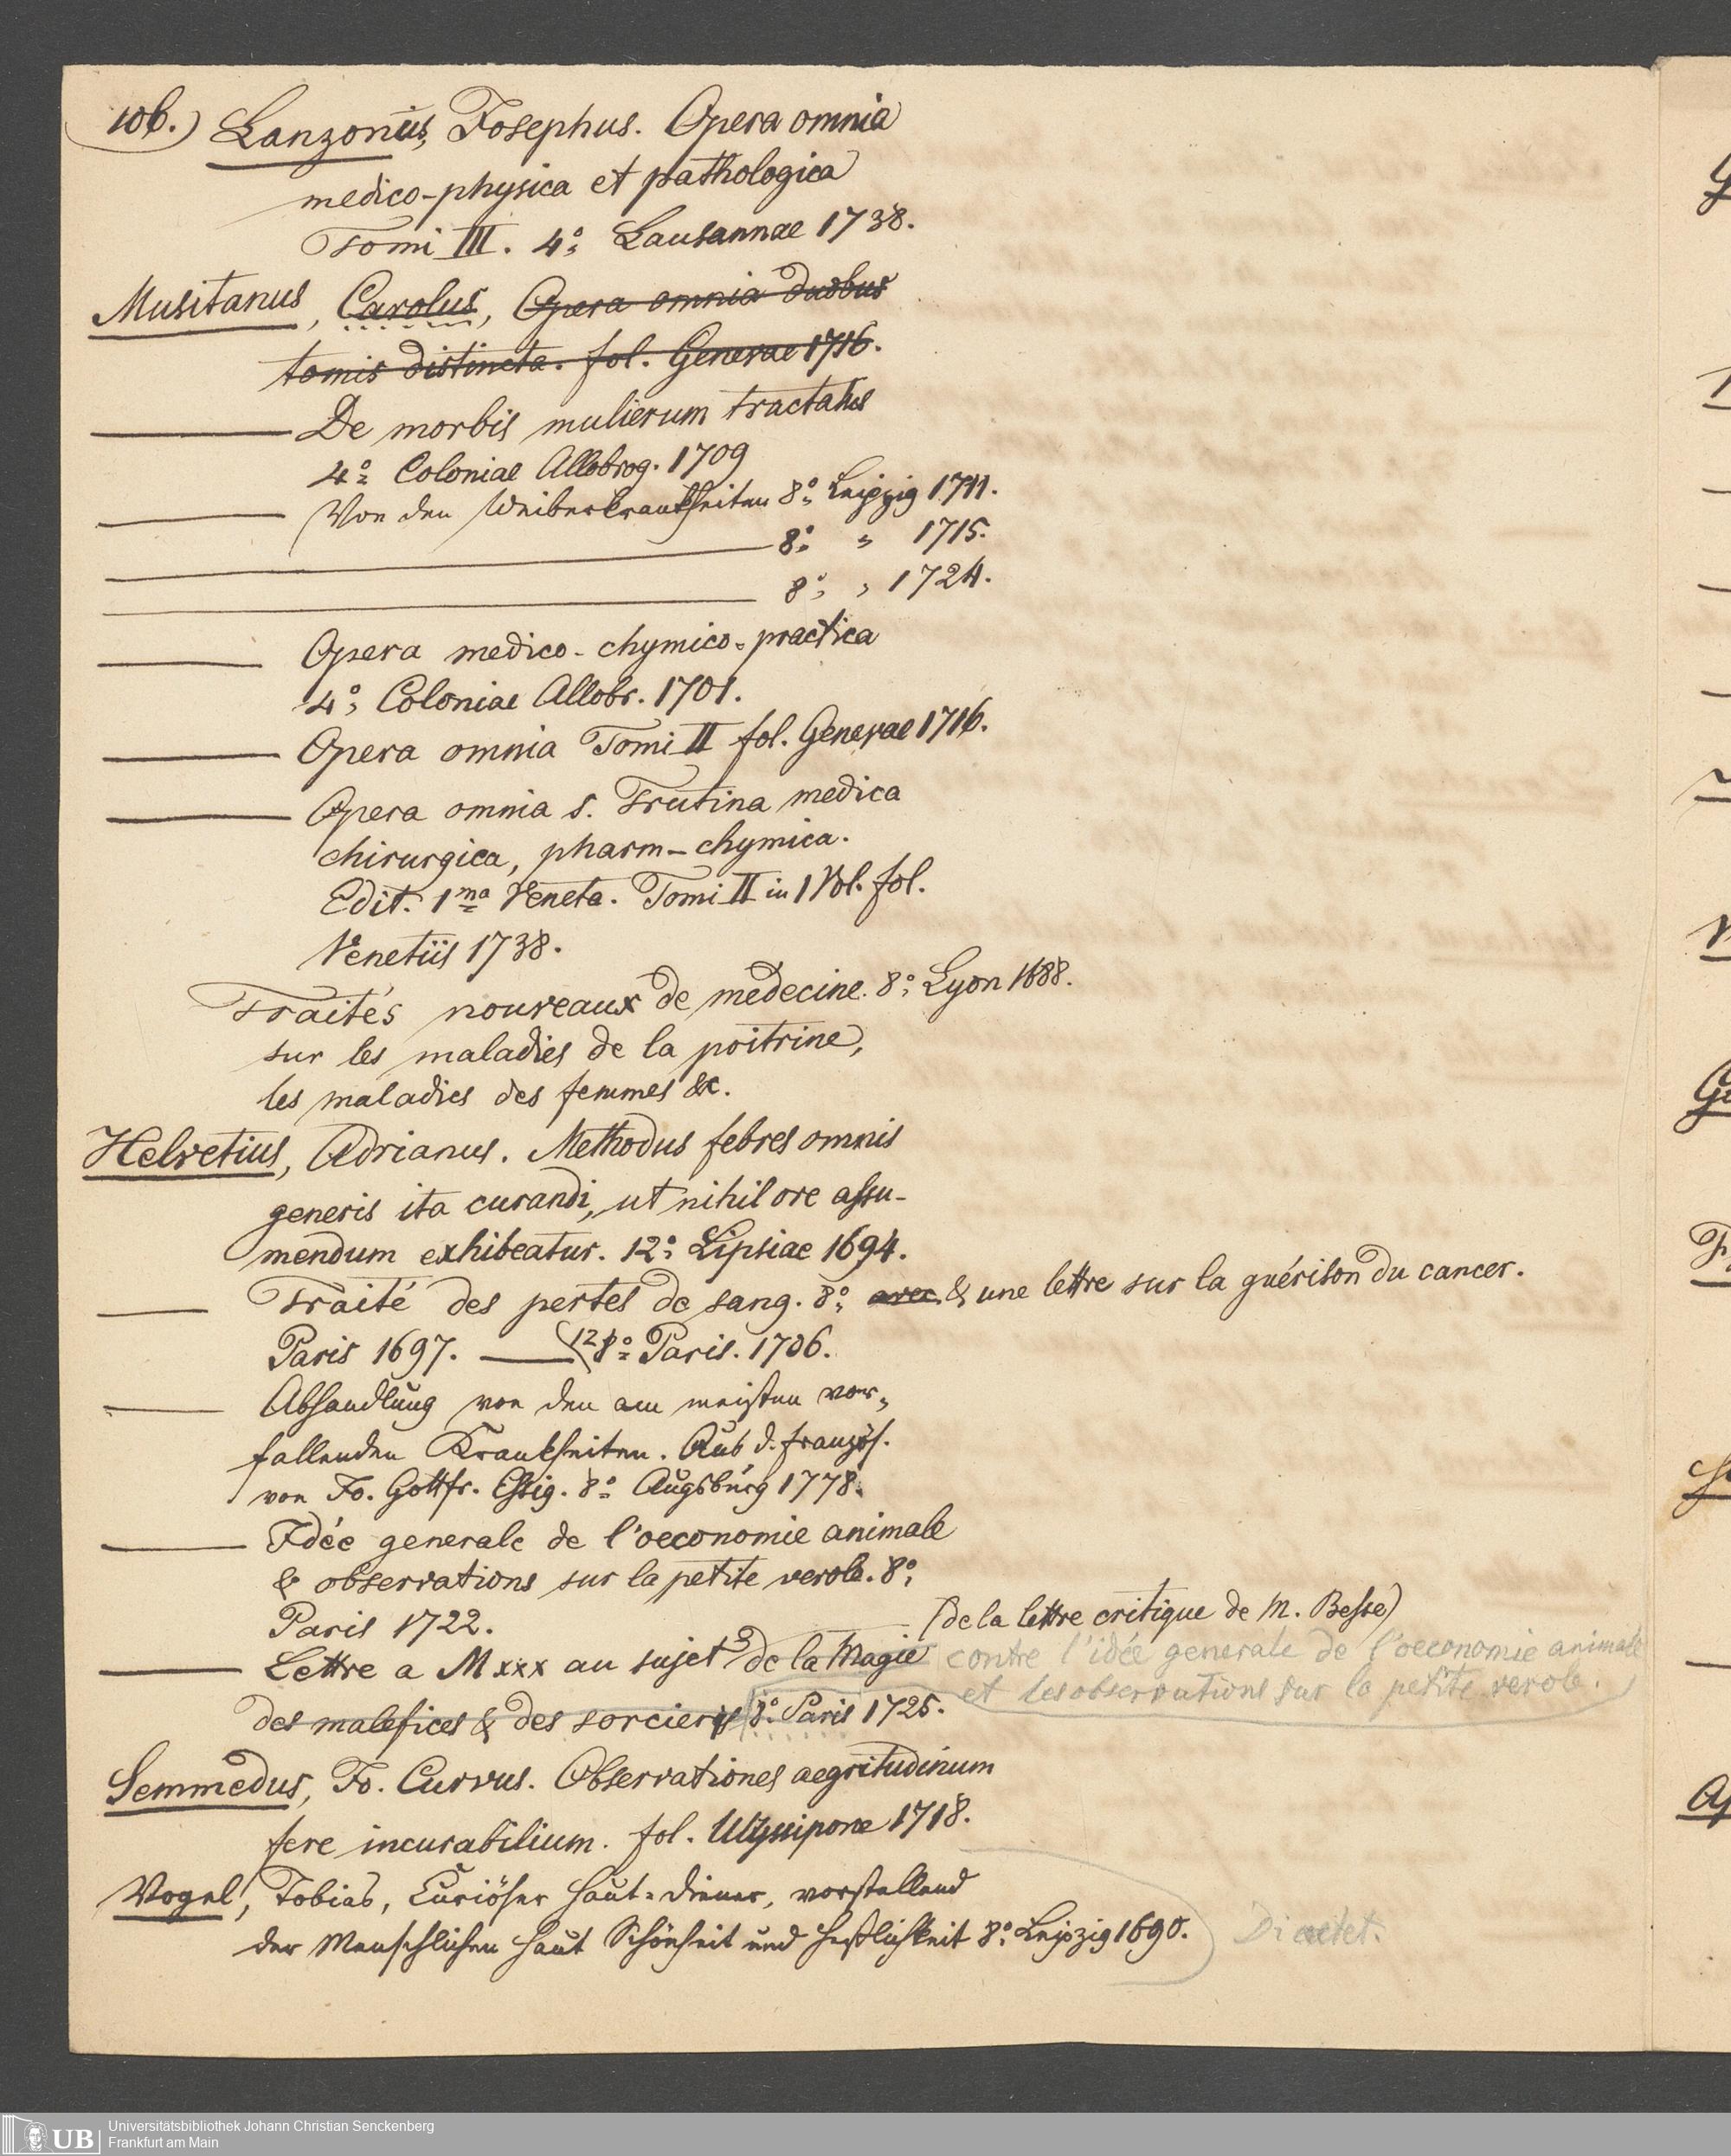 106.) Lanzonius, Josephus. Opera omnia
medico-physica et pathologica
Tomi III. 4° Lausannae 1738.
Musitanus, Carolus, Opera omnia duobus
tomis distincta. fol. Genevae 1716.
De morbis mulierum tractatus
4° Coloniae Allobrog. 1709
Von den Weiberkrankheiten 8° Leipzig 1711.
8° " 1715.
8° " 1724.
Opera medico-chymico-practica
4° Coloniae Allobr. 1701.
Opera omnia Tomi II fol. Genevae 1716.
Opera omnia s. Trutina medica
chirurgica, pharm-chymica.
Edit. 1ma Veneta. Tomi II in 1 Vol. fol.
Venetiis 1738.
Traités nouveaux de médecine. 8° Lyon 1688.
sur les maladies de la poitrine,
les maladies des femmes &c.
Helvetius, Adrianus. Methodus febres omnis
generis ita curandi, ut nihil ore assu-
mendum exhibeatur. 12° Lipsiae 1694.
Traité des pertes de sang. 8° avec & une lettre sur la guérison du cancer.
Paris 1697. 12 8° Paris. 1706.
Abhandlung von den am meisten vor-
fallenden Krankheiten. Aus d. französ.
von Jo. Gottfr. Essig. 8° Augsburg 1778.
Idée generale de l'oeconomie animale
& observations sur la petite verole. 8°
Paris 1722.
(de la lettre critique de M. Besse)
Lettre a M xxx au sujet de la Magie contre l'idée generale de l'oeconomie animale
et les observations sur la petite verole.
des malefices & des sorciers 8° Paris 1725.
Semmedus, Jo. Curvus. Observationes aegritudinum
fere incurabilium. fol. Ulyssipone 1718.
Vogel, Tobias, Curiöser Haut-Diener, vorstellend
der Menschlichen Haut Schönheit und Heßlichkeit 8° Leipzig 1690. Diaetet.
UB Universitätsbibliothek Johann Christian Senckenberg
Frankfurt am Main